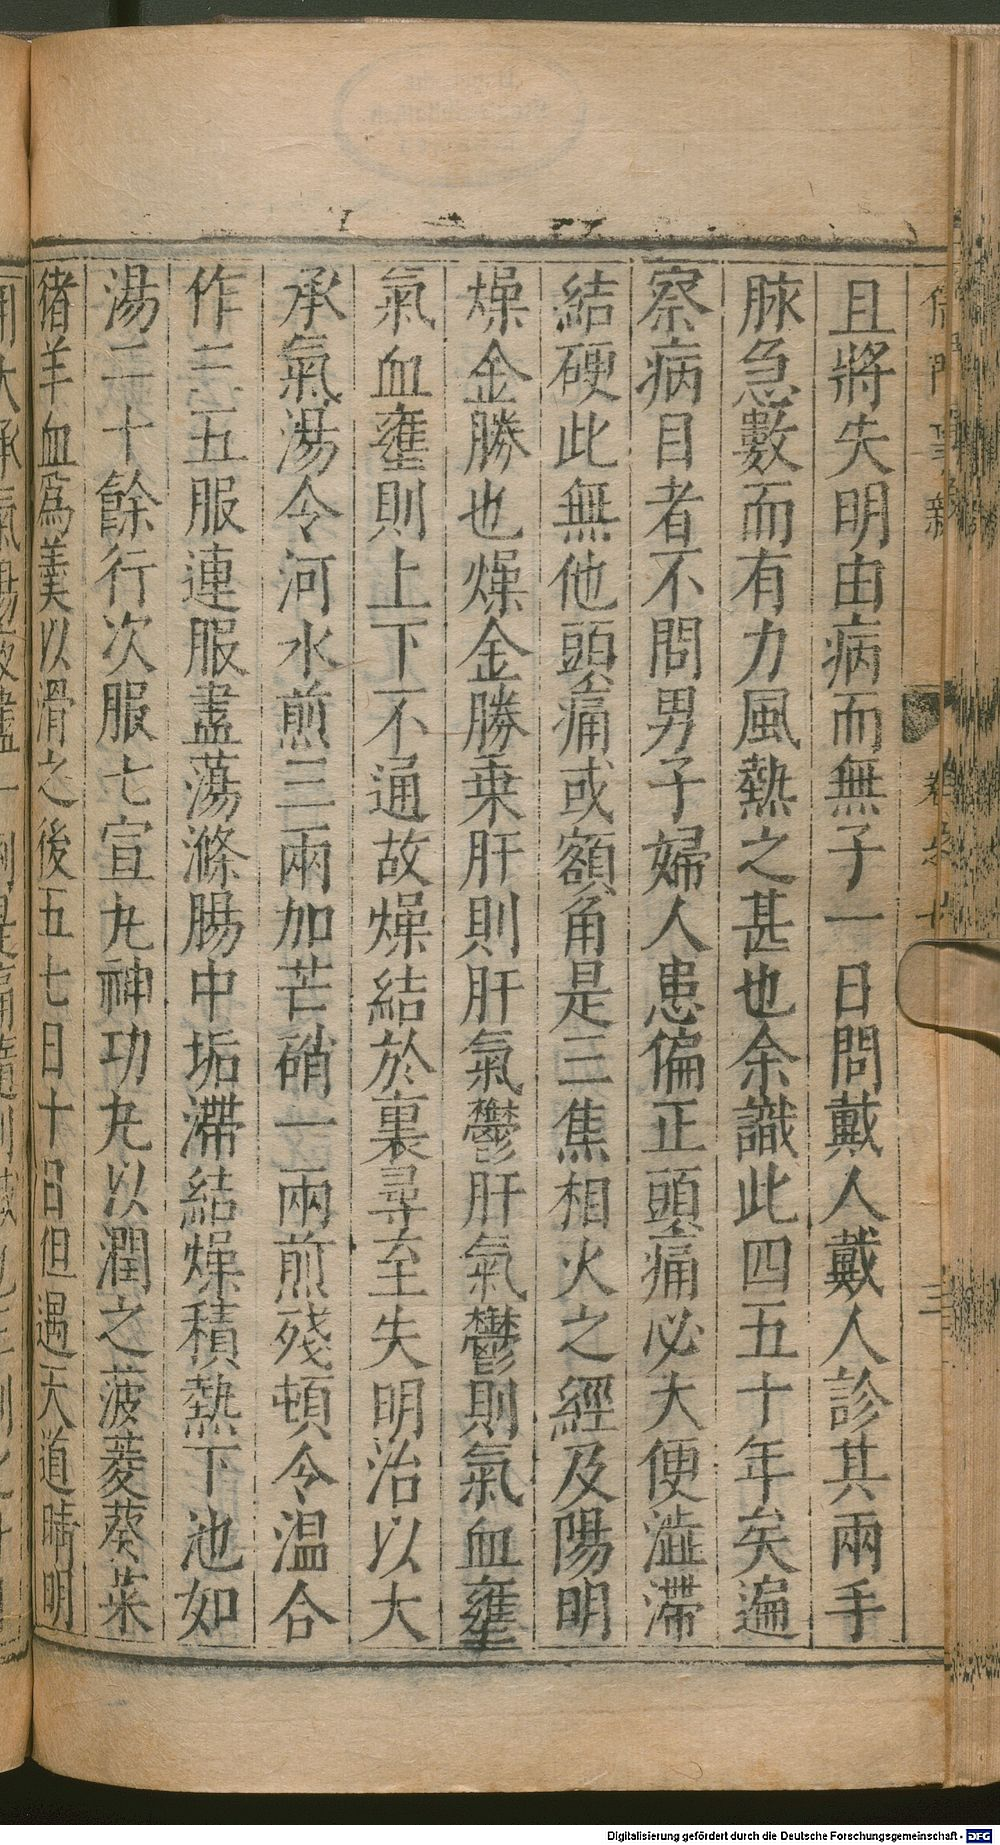 且將失明由病而無子一日問戴人戴人診其兩手
脉急數而有力風熱之甚也余識此四五十年矣遍
察病目者不問男子婦人患偏正頭痛必大便澁滯
結硬此無他頭痛或額角是三焦相火之經及陽明
燥金勝也燥金勝乗肝則肝氣鬱肝氣鬱則氣血壅
氣血壅則上下不通故燥結於裏尋至失明治以大
承氣湯令河水煎三兩加芒硝一兩煎殘頓令温合
作三五服連服盡蕩滌腸中垢滯結燥積熱下池如
湯二十餘行次服七宣丸神功丸以潤之菠菱葵菜
猪羊血爲羹以滑之後五七日十日但遇天道晴明
Digitalisierung gefördert durch die Deutsche Forschungsgemeinschaft - DFG